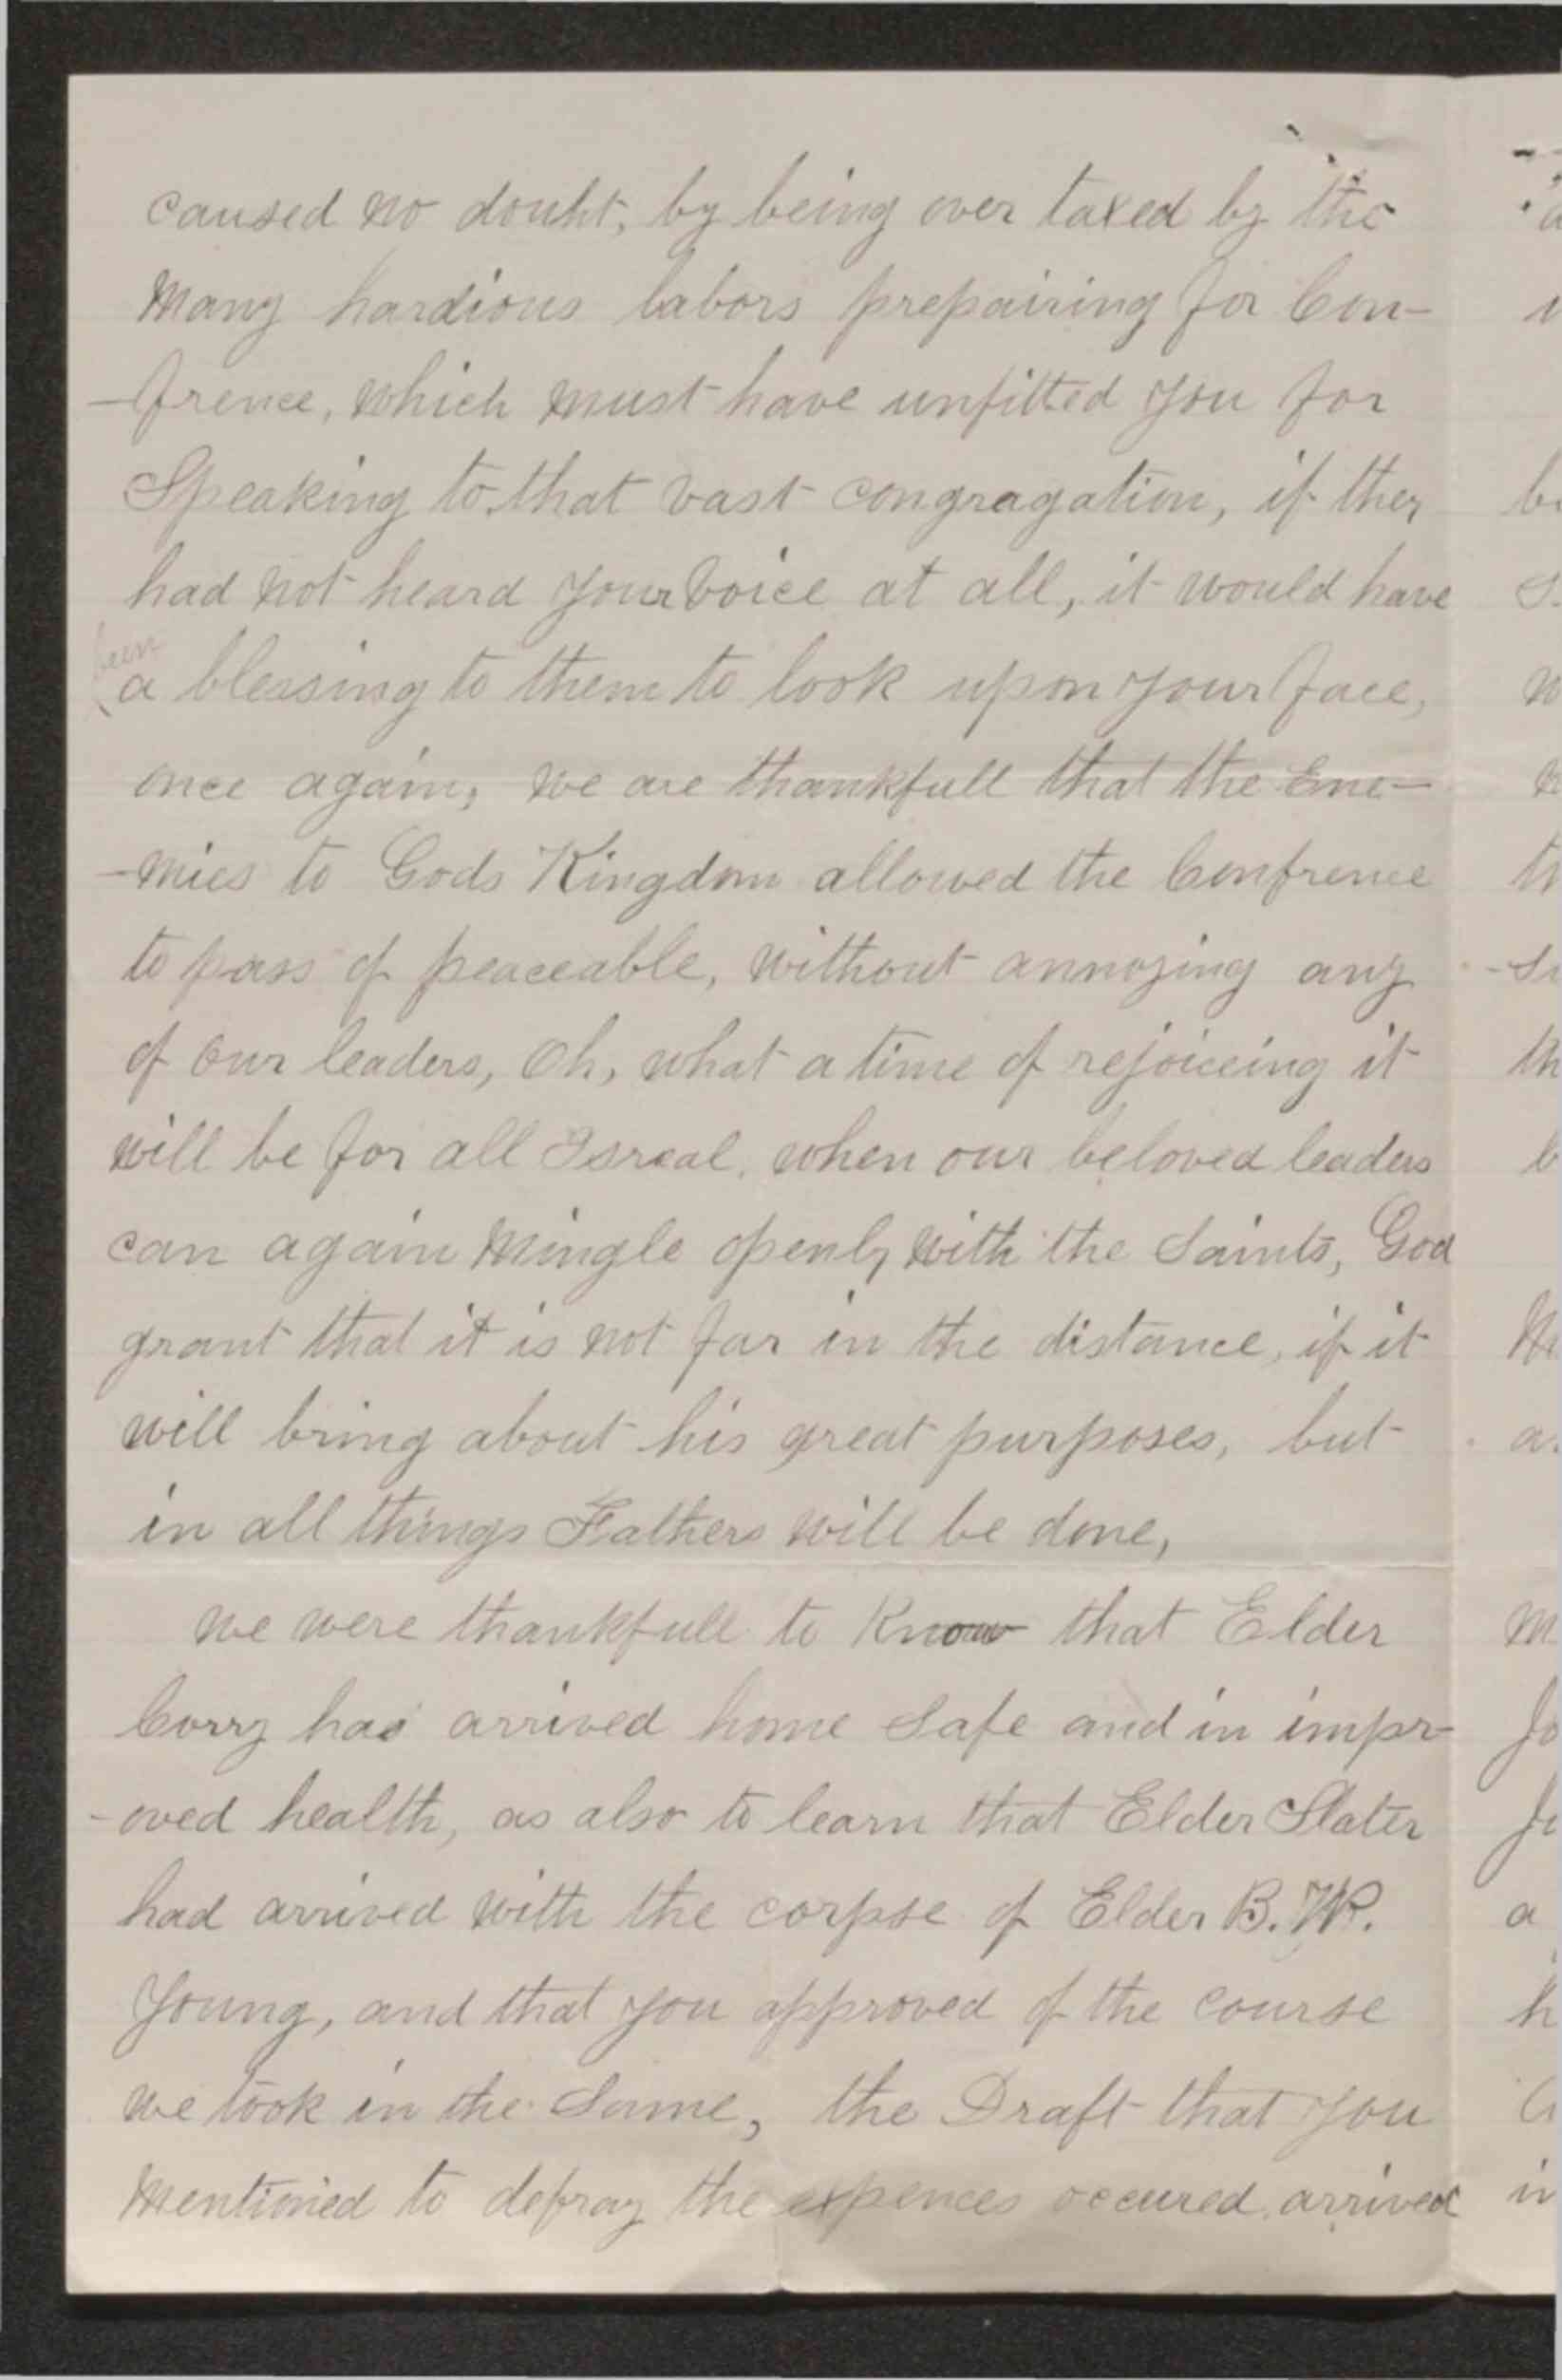 caused no doubt, by being over taxed by the
many hardious labors prepairing for Con-
-frence, which must have unfitted you for
Speaking to that vast congragation, if they
had not heard your voice at all, it would have
been
a blessing to them to look upon your face,
once again, we are thankfull that the Ene-
-mies to Gods Kingdom allowed the Confrence
to pass of peaceable, without annoying any
of our leaders, Oh, what a time of rejoiceing it
will be for all Isreal, when our beloved leaders
can again mingle openly with the Saints, God
grant that it is not far in the distance, if it
will bring about his great purposes, but
in all things Fathers will be done,
we were thankfull to Know that Elder
Corry has arrived home safe and in impr-
-oved health, as also to learn that Elder Slater
had arrived with the corpse of Elder B. W.
Young, and that you approved of the course
we took in the Same, the Draft that you
mentioned to defray the expences occured, arrived